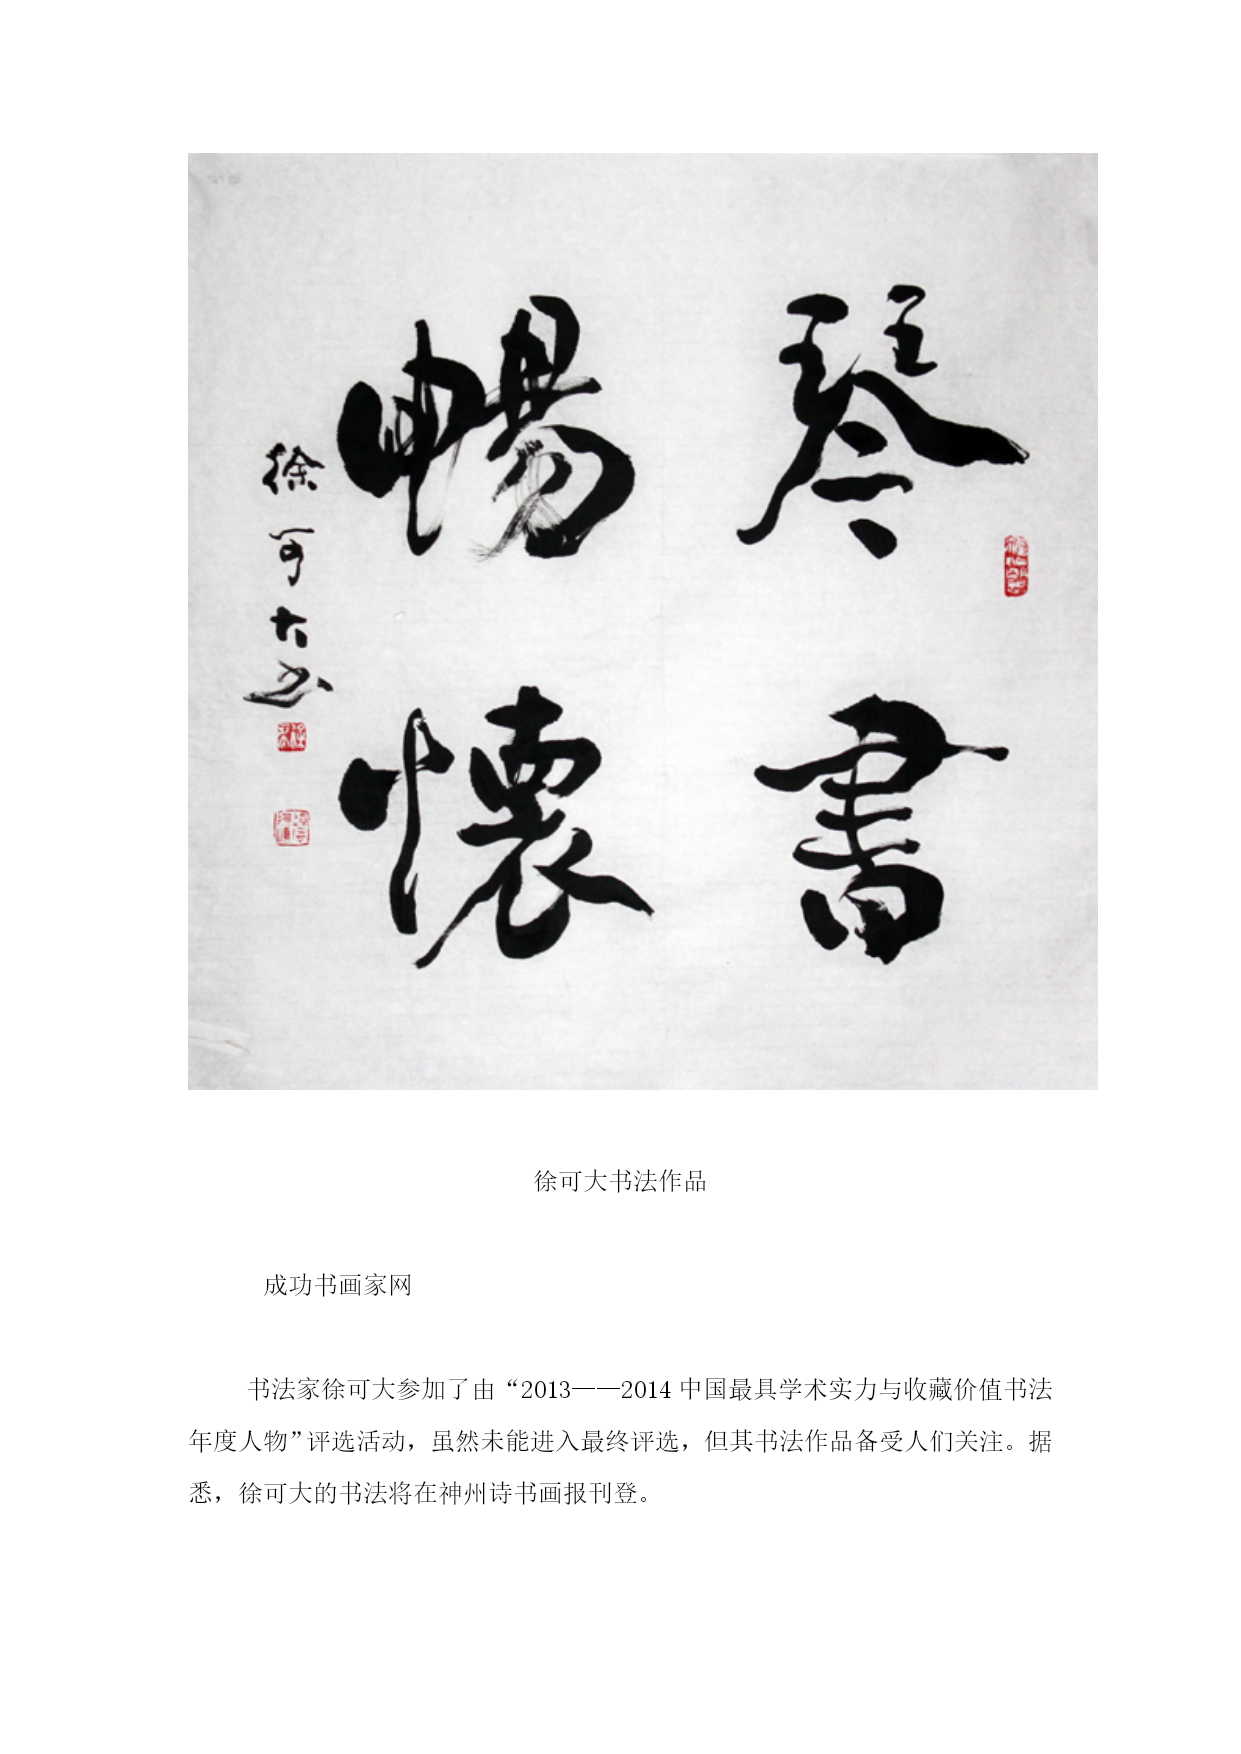 琴書
暢懷
徐可大书
徐可大书法作品
成功书画家网
书法家徐可大参加了由“2013——2014中国最具学术实力与收藏价值书法
年度人物”评选活动，虽然未能进入最终评选，但其书法作品备受人们关注。据
悉，徐可大的书法将在神州诗书画报刊登。